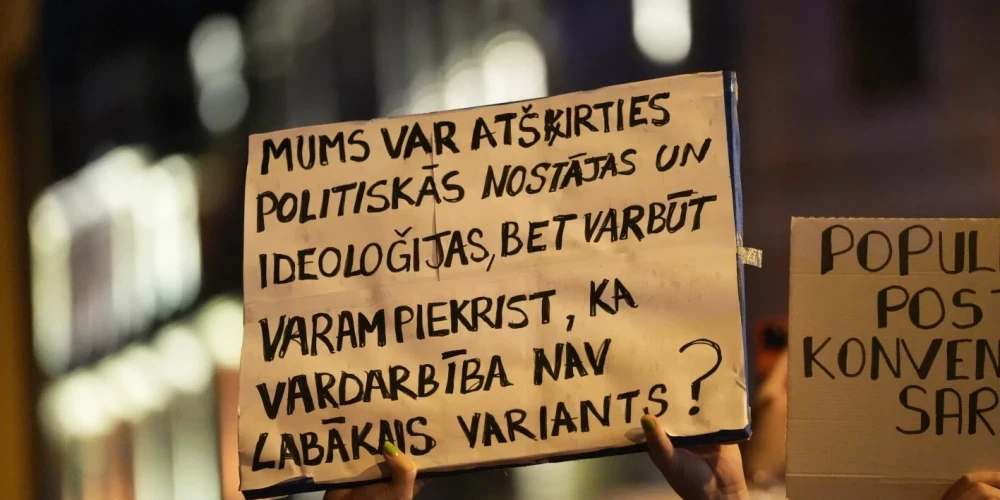 MUMS VAR ATŠĶIRTIES
POLITISKĀS NOSTĀJAS UN
IDEOLOĢIJAS, BET VARBŪT
VARAM PIEKRIST, KA
VARDARBĪBA NAV
LABĀKAIS VARIANTS?
POPUL
POST
KONVEN
SAR